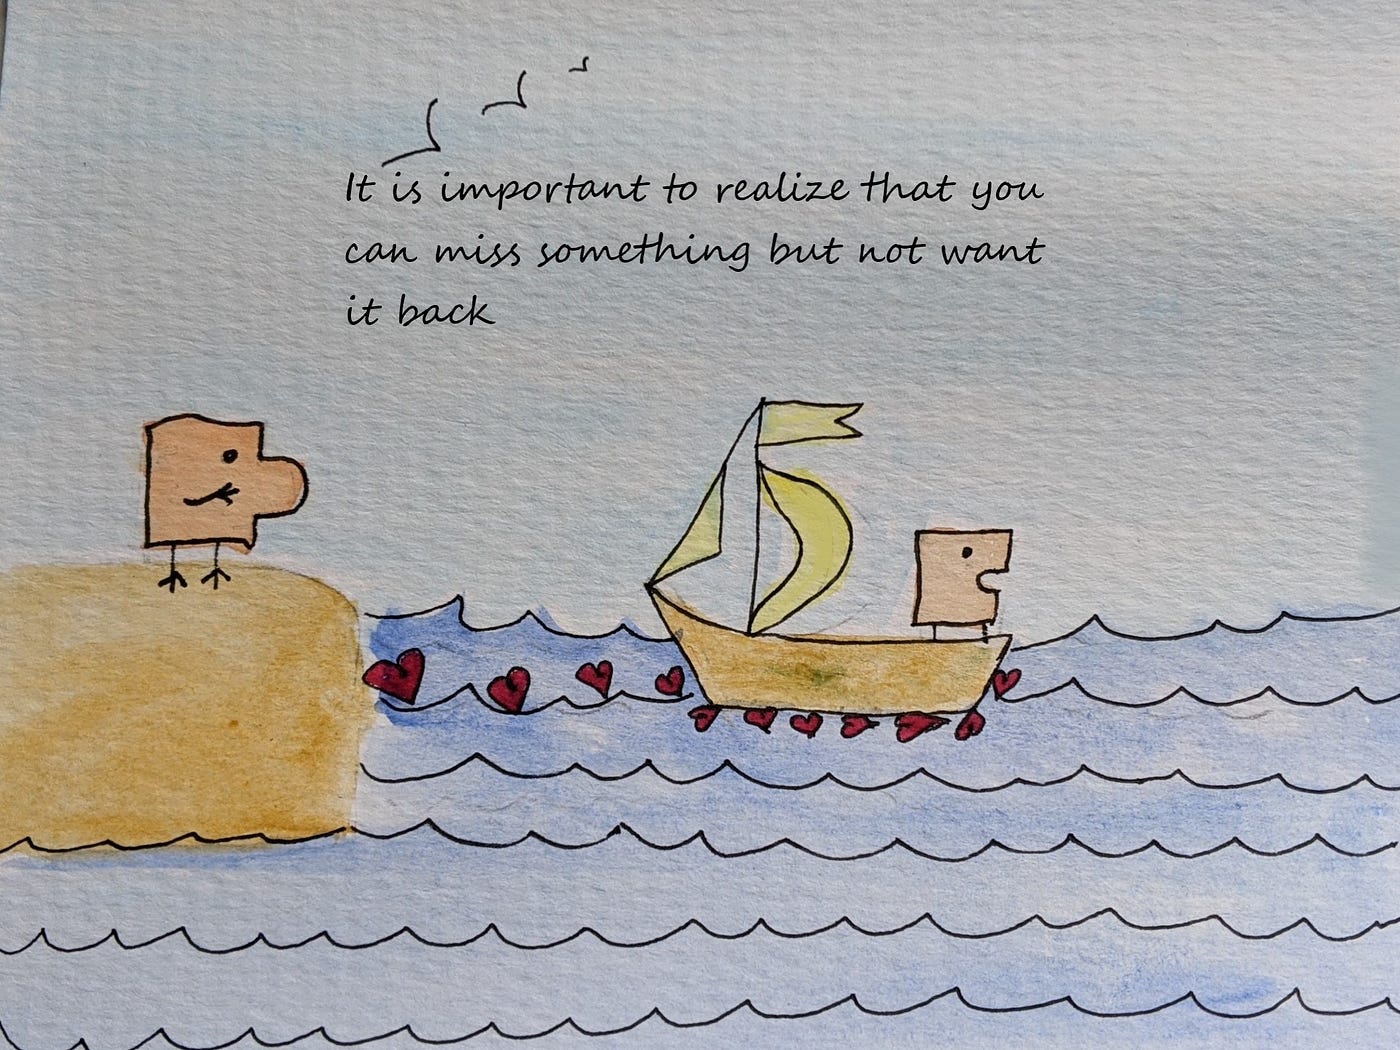 It is important to realize that you
can miss something but not want
it back